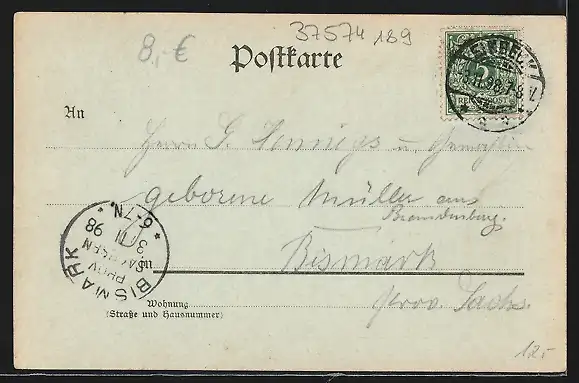 37574 189
8,-€
Postkarte
5
REICHSPOST
98.7-8 V.
An
Herrn G. Hennigs u. Gemahlin
geborene Müller aus
Brandenburg.
in Bismark
Prov. Sachs.
Wohnung
(Straße und Hausnummer)
BISMARK
PROV SACHSEN
3 11 98
6-7N.
12.-